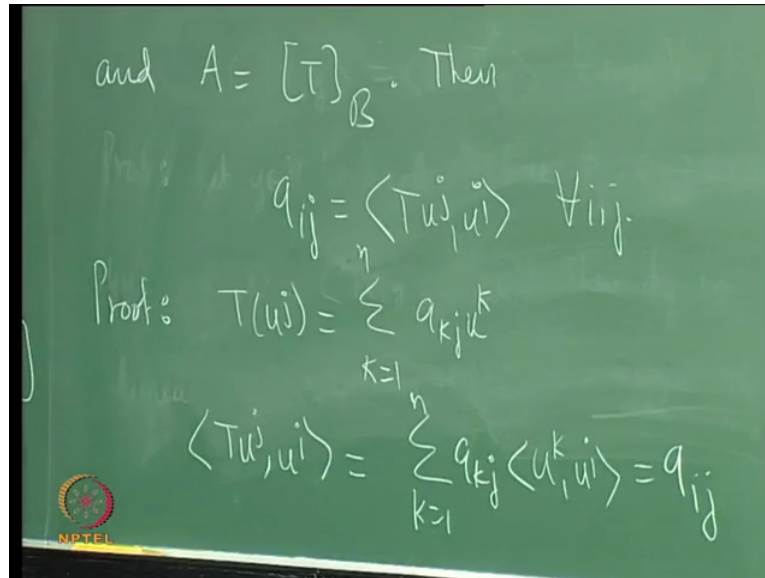 and A = [T]_B. Then
a_{ij} = ⟨Tu^j, u^i⟩ ∀ i, j.
Proof: T(u^j) = \sum_{k=1}^{n} a_{kj} u^k
⟨Tu^j, u^i⟩ = \sum_{k=1}^{n} a_{kj} ⟨u^k, u^i⟩ = a_{ij}
NPTEL